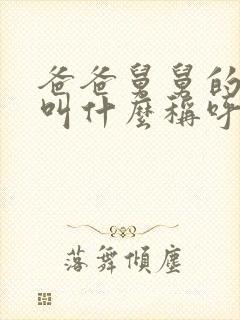 爸爸舅舅的
叫什麼稱呼
落舞傾塵